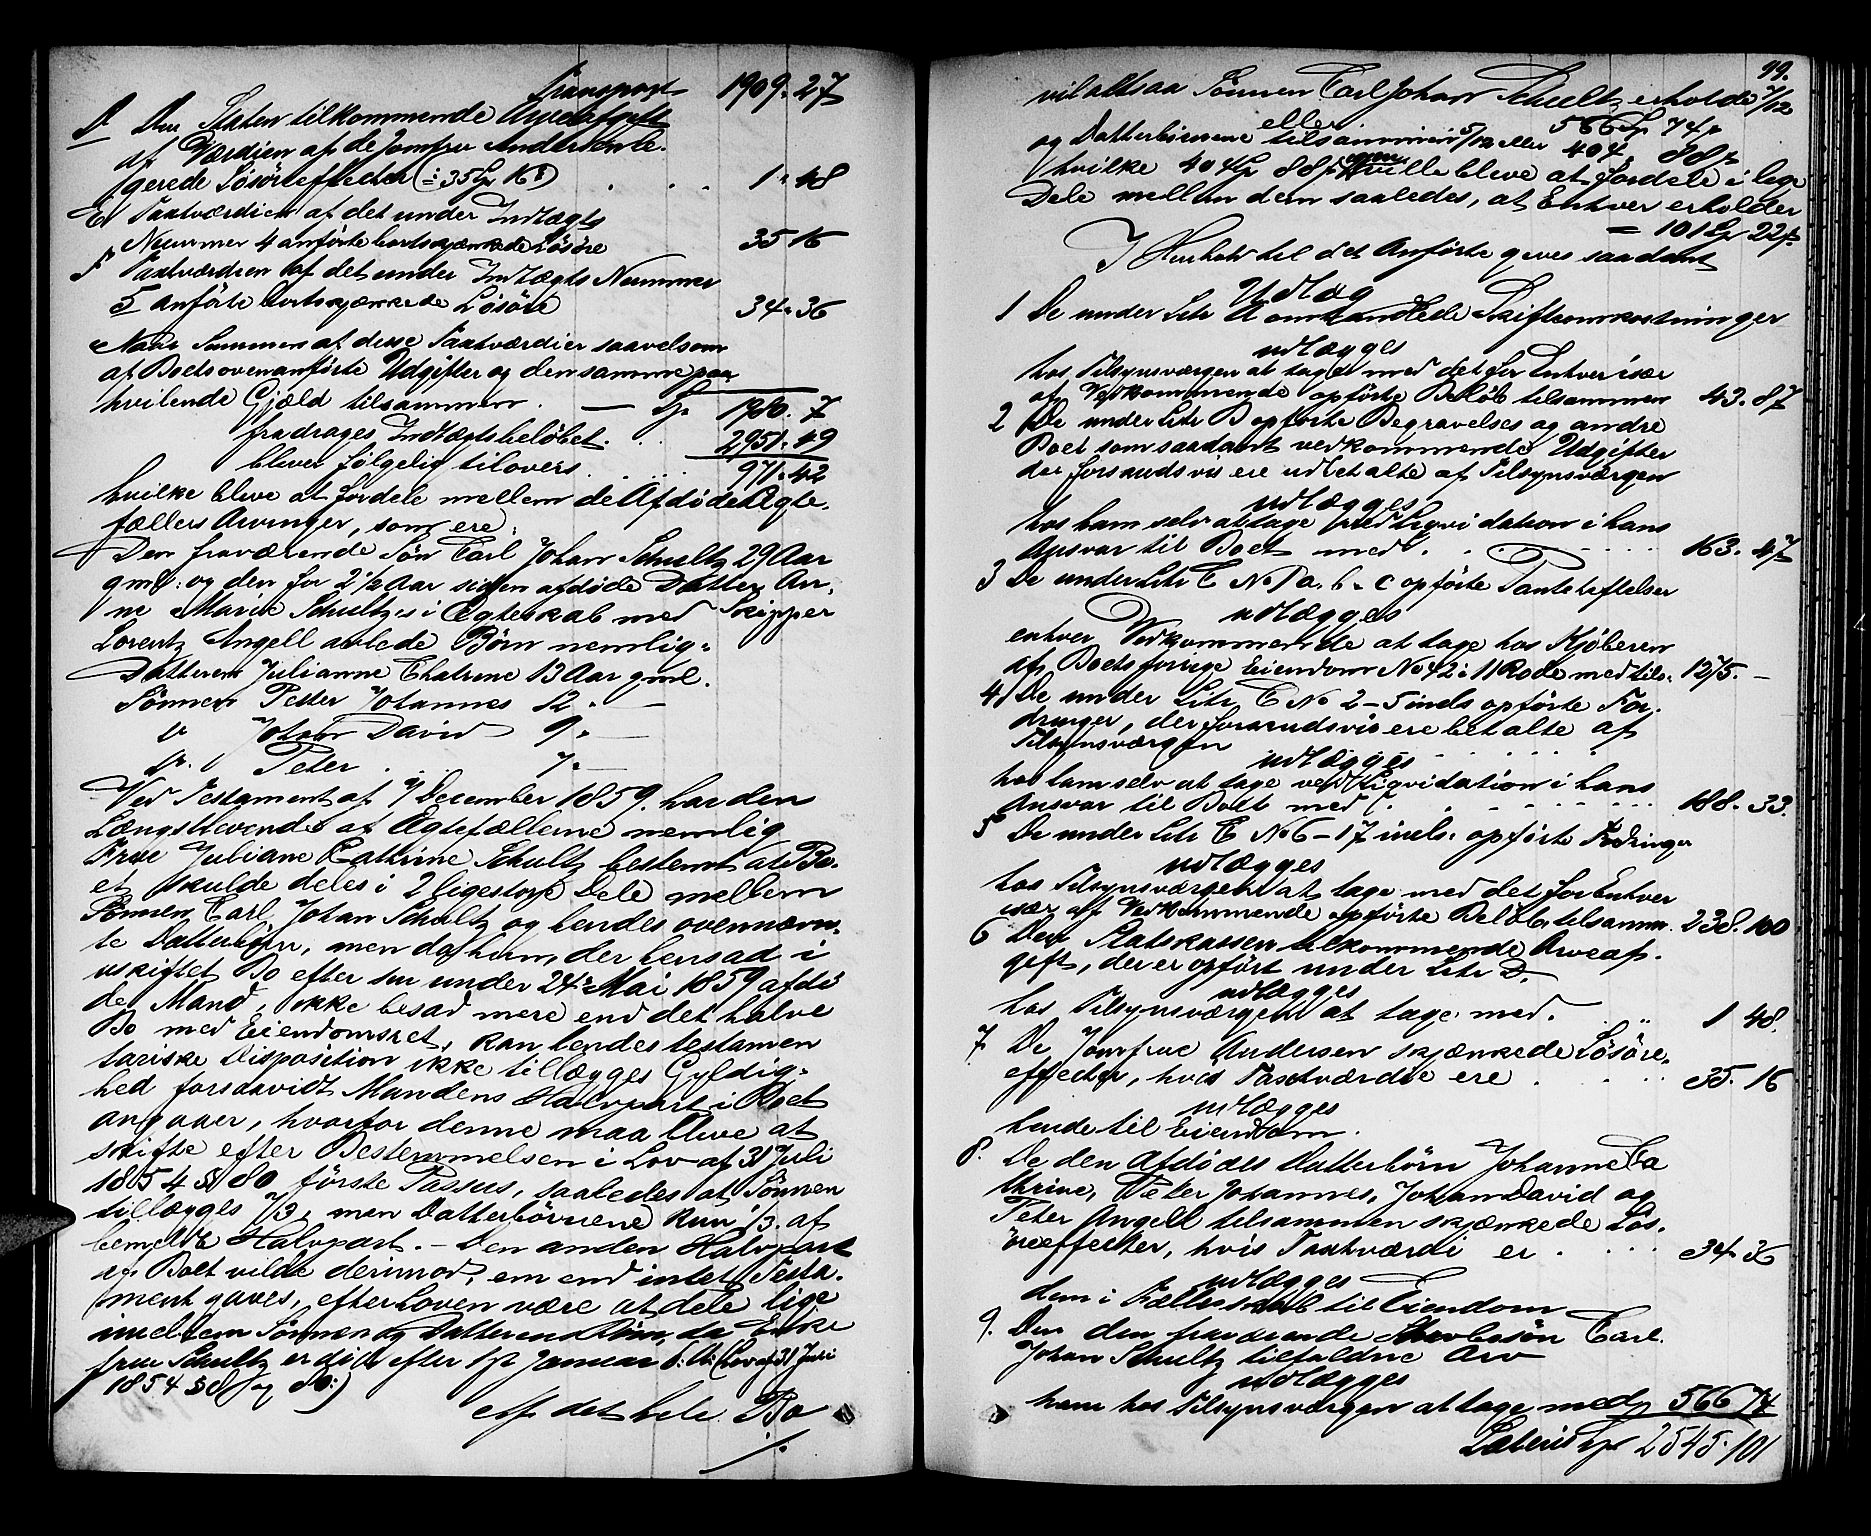 Transport 1909. 27
D. Den Staten tilkommende Arveafgift
af Værdien af de Jomfru Andersen te-
gerede Lösöreeffecter (: 35 Sp 16 s) . . . 1 " 48
E. Taxtværdien af det under Indtægts
Nummer 4 anförte bortskjænkede Lösöre 35 16
F Taxtværdien af det under Indtægts Nummer
5 anförte bortskjænkede Lösöre 34 " 36
Naar Summen af disse Taxtværdier saavelsom
af Boets ovenanförte Udgifter og den samme paa
hvilende Gjæld tilsammen . — Sp 1980. 7
fradrages Indtægtsbelöbet. . . 2951. 49
bliver fölgelig tilovers . . . 971. 42
hvilke bleve at fordele mellem de Afdöde Ægte-
fællers Arvinger, som ere:
Den fraværende Sön Carl Johan Schultz 29 Aar
gml: og den for 2 1/2 Aar siden afdöde Datter An-
ne Marie Schultzes i Ægteskab med Skipper
Lorentz Angell avlede Börn nemlig:
Datteren Julianne Chatrine 13 Aar gml.
Sönnen Petter Johannes 12 " —
" Johan David 9 " —
" Peter . . . 7 " —
Ved Testament af 7 December 1859 har den
Længstlevende af Ægtefællerne nemlig
Frue Juliane Cathrine Schultz bestemt at Bo-
et skulde deles i 2 ligestore Dele mellem
Sönnen Carl Johan Schultz og hendes ovennævn-
te Datterbörn, men da hun, der hensad i
uskiftet Bo efter sin under 24de Mai 1859 afdö-
de Mand, ikke besad mere end det halve
Bo med Eiendomsret, kan hendes testamen
tariske Disposition ikke tillægges Gyldig-
hed forsaavidt Mandens Halvpart i Boet
angaaer, hvorfor denne maa blive at
skifte efter Bestemmelsen i Lov af 31 Juli
1854 § 80 förste Passus, saaledes at Sönnen
tillægges 2/3, men Datterbörnene kun 1/3 af
bemeldte Halvpart. — Den anden Halvpart
af Boet vilde derimod, om end intet Testa-
ment gaves, efter Loven være at dele lige
imellem Sönnen og Datterens Börn, da Enke
frue Schultz er död efter 1ste Januar (Lov af 31 Juli
1854 § og 80:)
Af det hele Bo
./.
99.
vil altsaa Sönnen Carl Johan Schultz erholde 7/12
eller 566 Sp 74 s
og Datterbörnene tilsammen 5/12 eller 404 " 88 s
hvilke 404 Sp 88 s ville bleve at fordele i lige
Dele mellem dem saaledes, at Enhver erholder
= 101 Sp 22 s.
I Henhold til det Anförte gives saadant
Udlæg
1 De under Litr A omhandlede Skifteomkostninger
udlægges
hos Tilsynsværgen at tage med det for Enhver især
af Vedkommende opförte Belöb tilsammen 43. 87
2 De under Litr B opförte Begravelses og andre
Boet som saadant vedkommende Udgifter
der forskudsvis ere udbetalte af Tilsynsværgen
udlægges
hos ham selv at tage ved Liqvidation i hans
Ansvar til Boet med . . . . 163. 47
3 De under Litr C No 1 a. b - c opförte Panteheftelser
udlægges
enhver Vedkommende at tage hos Kjöberen
af Boets forrige Eiendom No 42 i 11 Rode med tils. 1275. —
4) De under Litr C No 2 - 5 incls opförte For-
dringer, der forskudsvis ere betalte af
Tilsynsværgen
udlægges
hos ham selv at tage ved Liqvidation i hans
Ansvar til Boet med . . . . 188. 33.
5 De under Litr C No 6 - 17 incls: opförte Fordringer
udlægges
hos Tilsynsværgen at tage med det for Enhver
især af Vedkommende opförte Belöb, tilsamm. 238. 100
6 Den Statskassen tilkommende Arveaf-
gift, der er opfört under Litr D.
udlægges
hos Tilsynsværgen at tage med. . . 1 48.
7 De Jomfrue Andersen skjænkede Lösöre-
effecter, hvis Taxtværdie ere . . . . 35. 16
udlægges
hende til Eiendom.
8. De den Afdödes Datterbörn Johanne Ca
thrine, Peter Johannes, Johan David og
Peter Angell tilsammen skjænkede Lös-
öreeffecter, hvis Taxtværdi er . . . . 34 36
udlægges
dem i Fællesskab til Eiendom
9. Den den fraværende Sön Carl
Johan Schultz tilfaldne Arv
udlægges
ham hos Tilsynsværgen at tage med 566 74
Lateris Sp 2545. 101